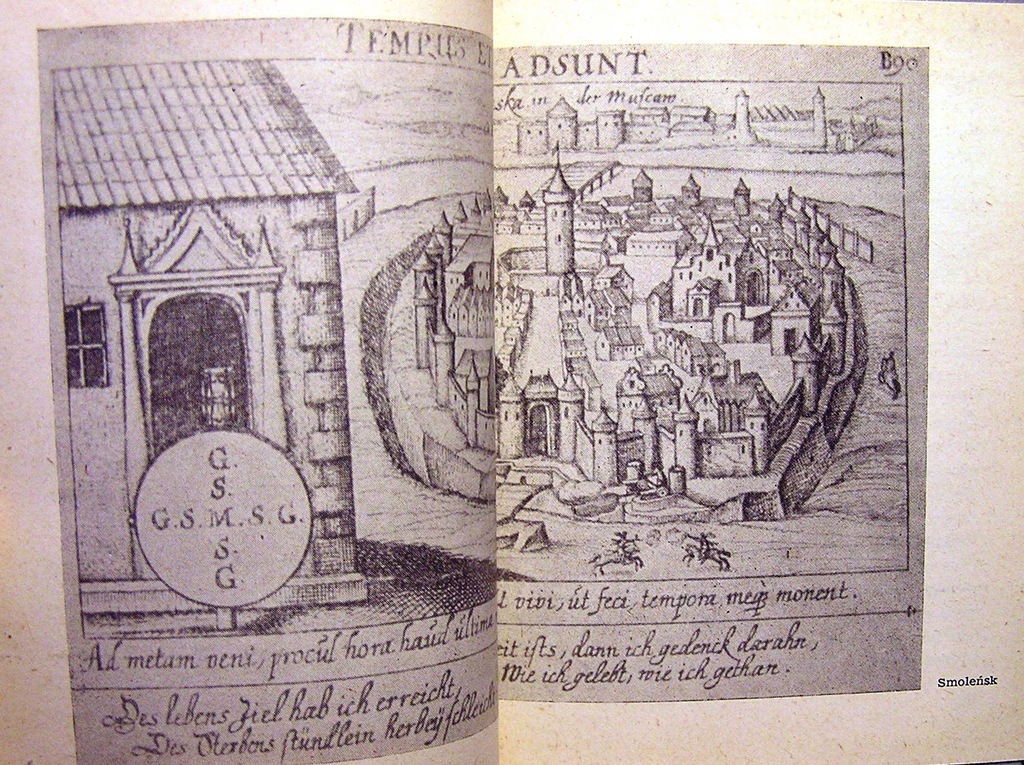 TEMPUS ET ADSUNT.
B90
ska in der Muscaw
G.
S.
G.S.M.S.G.
S.
G.
Ad metam veni, procul hora haud ultima
t vivi, ut feci, tempora meq3 monent.
Des lebens Ziel hab ich erreicht,
Des Sterbens stündlein herbey schleich
eit ists, dann ich gedenck darahn,
Wie ich gelebt, wie ich gethan.
Smoleńsk